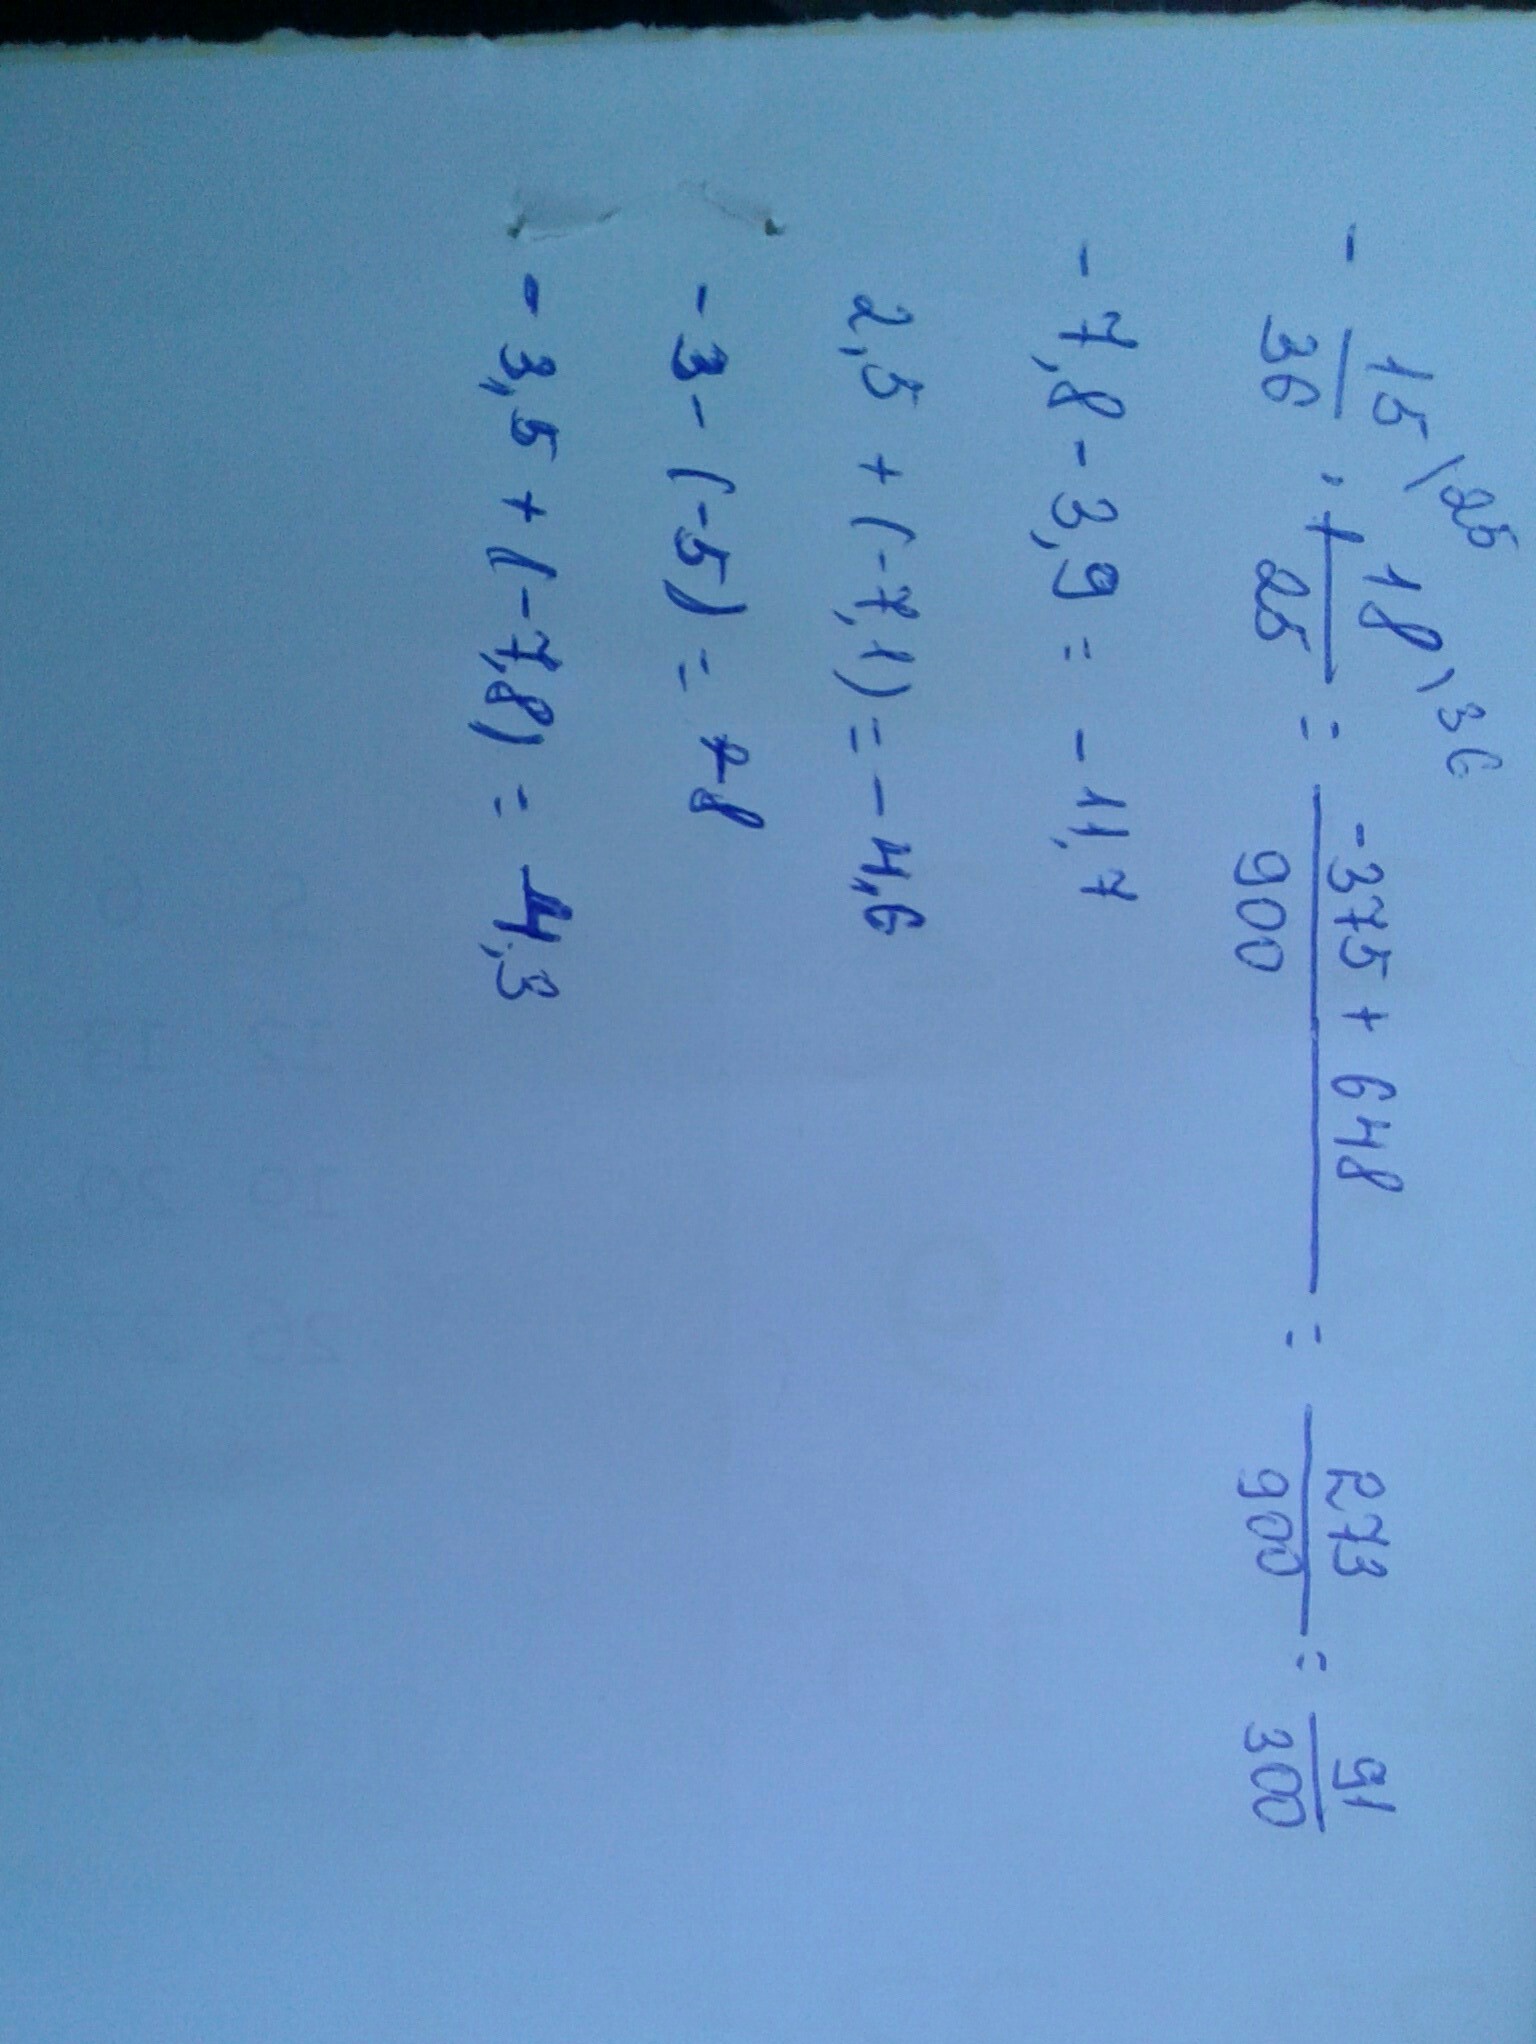 - 15\25/36 · + 18\36/25 = -375 + 648/900 = 273/900 = 91/300
- 7,8 - 3,9 = - 11,7
2,5 + (-7,1) = - 4,6
- 3 - (-5) = +8
- 3,5 + (-7,8) = 4,3